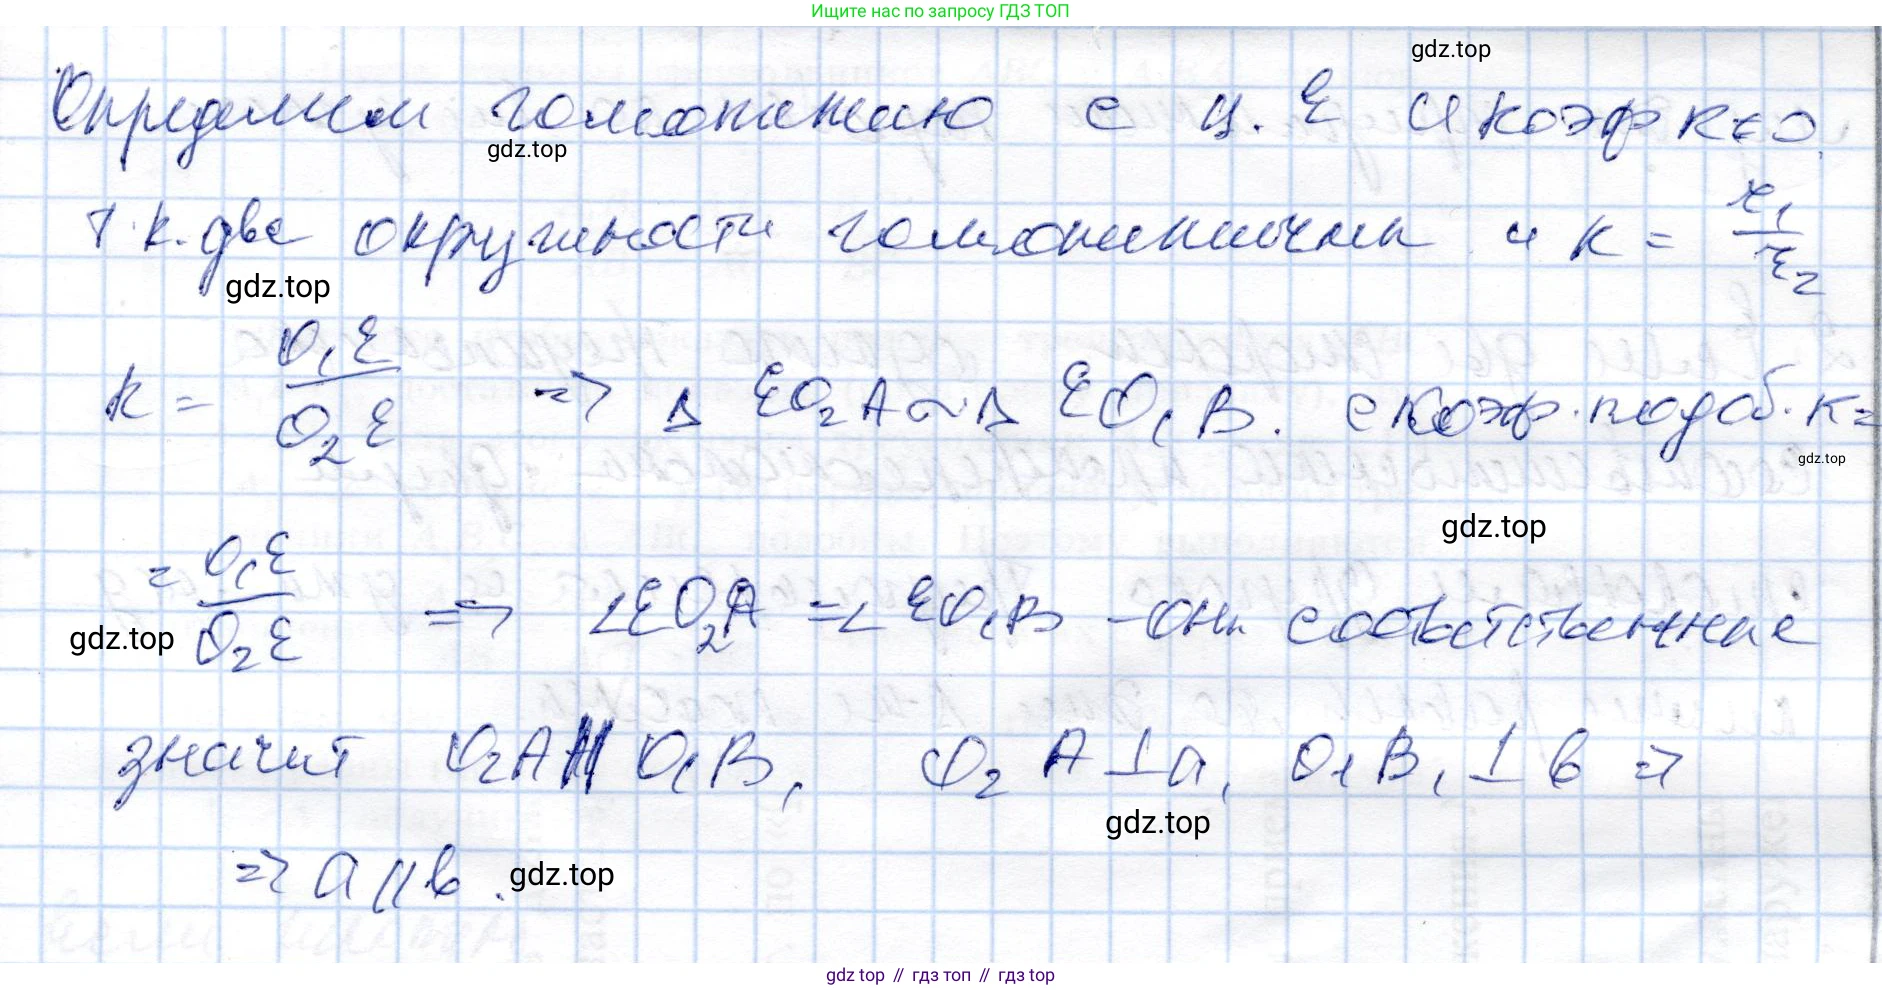 Ищите нас по запросу ГДЗ ТОП
gdz.top
Определим гомотетию с ц. E и коэф k<0,
gdz.top
т.к. две окружности гомотетичны и k = r₁/r₂
gdz.top
k = O₁E/O₂E => Δ EO₂A ~ Δ EO₁B. с коэф. подоб. k=
gdz.top
gdz.top
= O₁E/O₂E => ∠EO₂A = ∠EO₁B - они соответственные
gdz.top
значит O₂A || O₁B, O₂A ⊥ a, O₁B, ⊥ b =>
gdz.top
=> a || b.
gdz.top
gdz top // гдз топ // гдз top